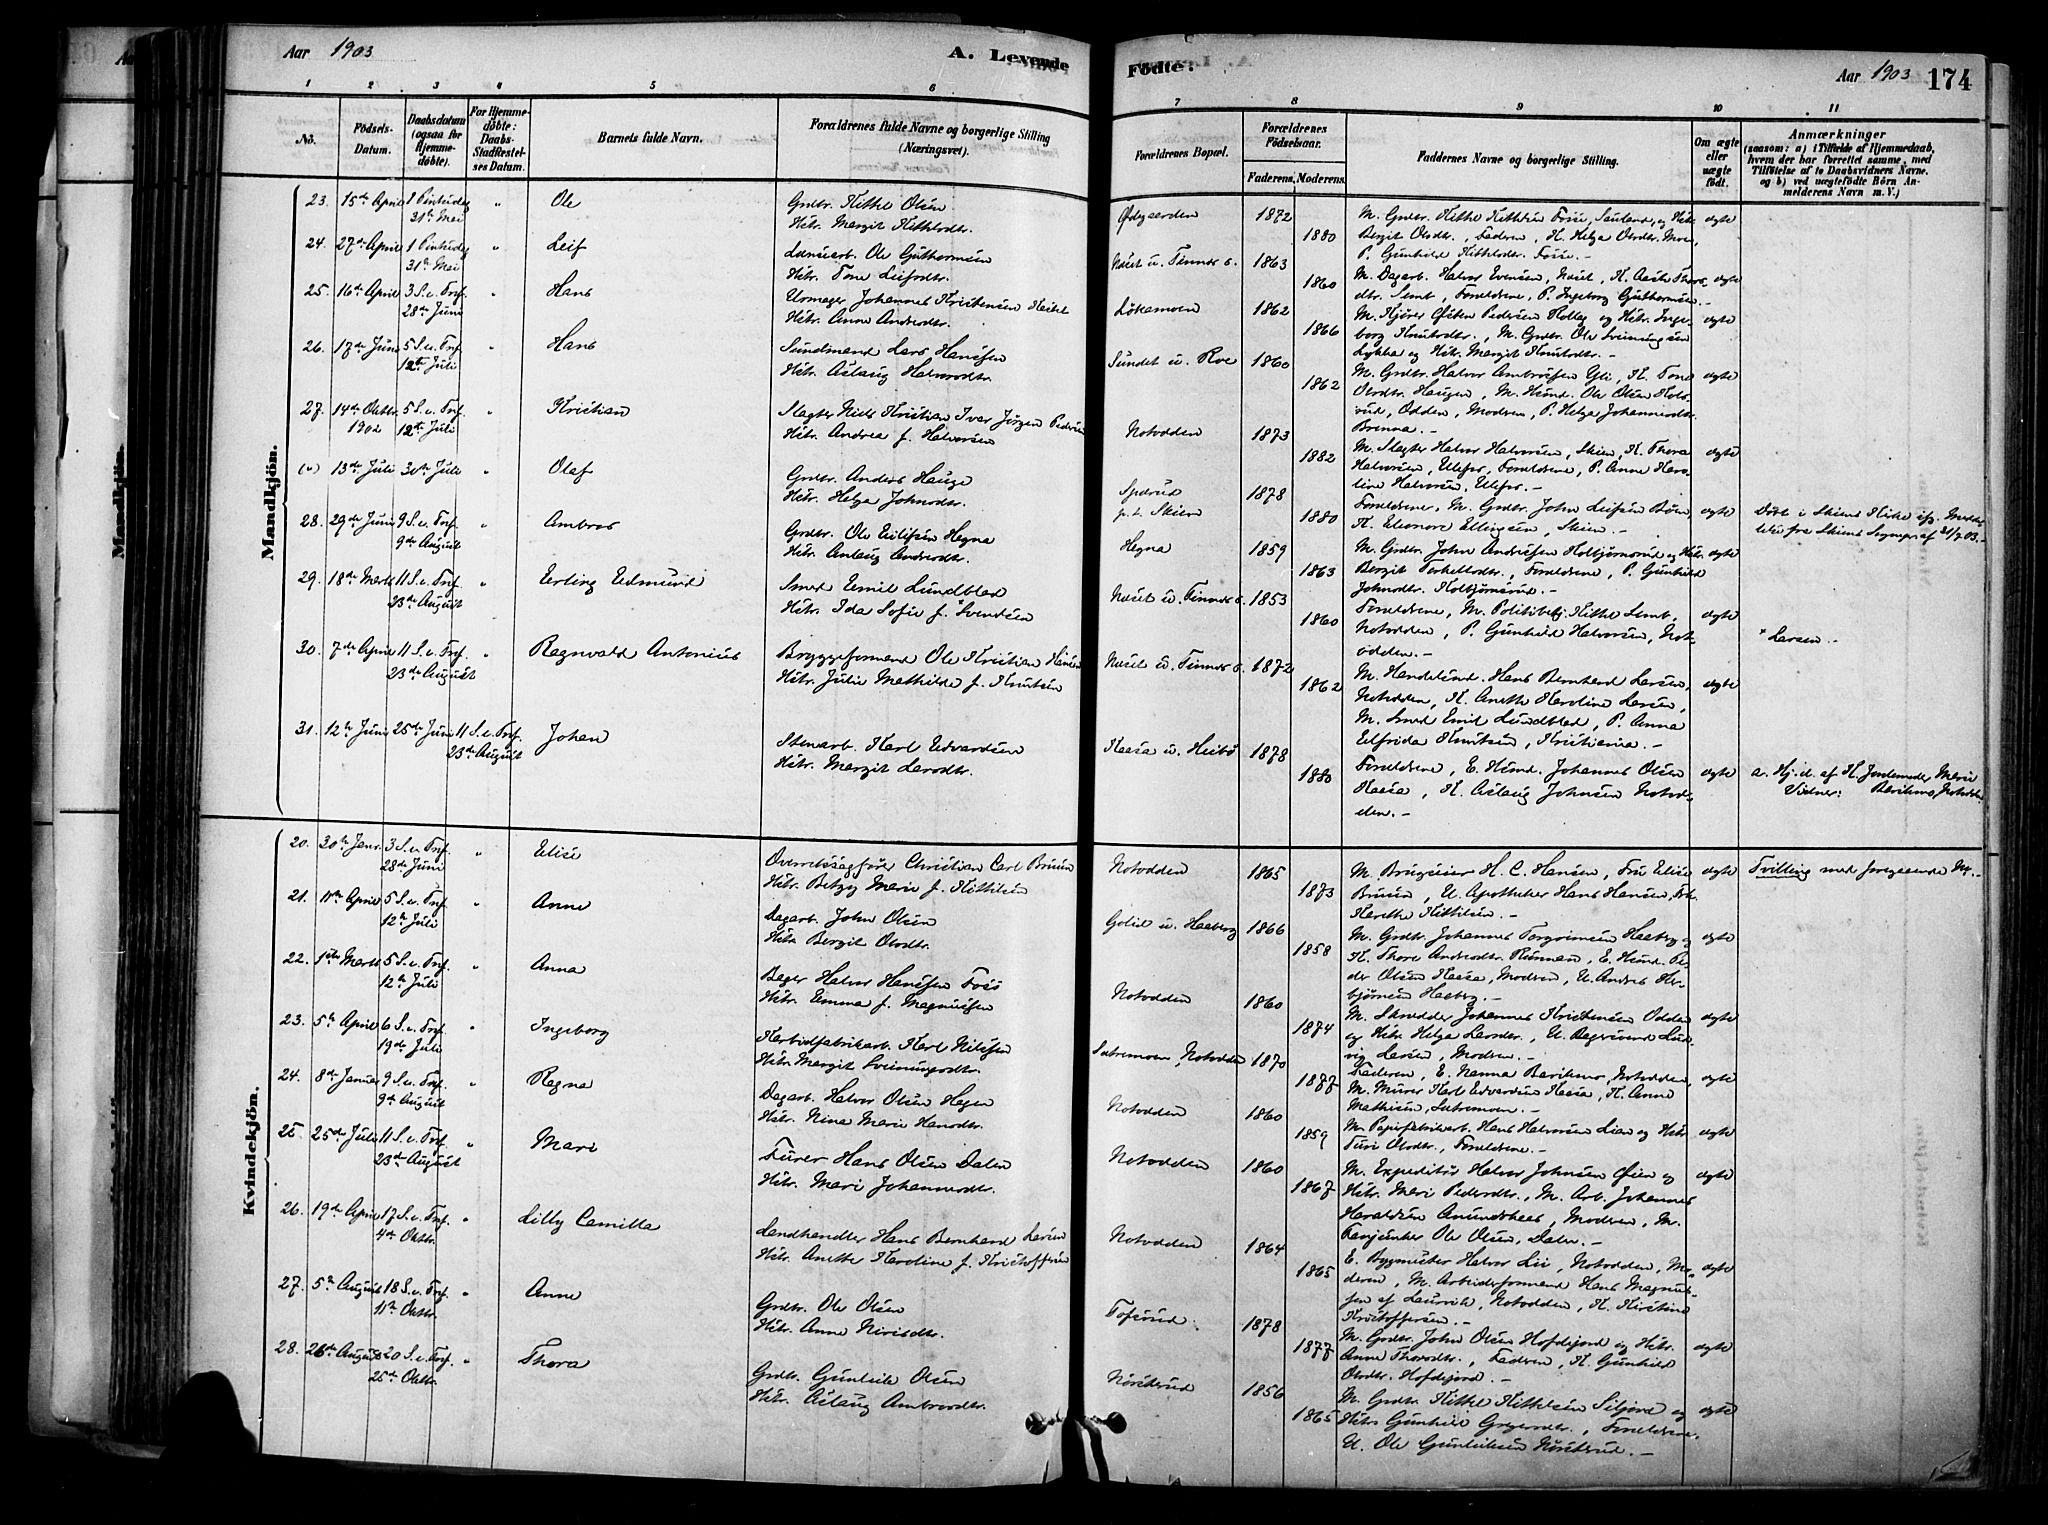 Aar 1903
A. Levende
Födte.
Aar 1903
174
1 2 3 4 5 6 7 8 9 10 11
No.
Födsels-
Datum.
Daabsdatum
(ogsaa for
Hjemme-
döbte).
For Hjemme-
döbte:
Daabs-
Stadfæstel-
ses Datum.
Barnets fulde Navn.
Forældrenes fulde Navne og borgerlige Stilling
(Næringsvei).
Forældrenes Bopæl.
Forældrenes
Födselsaar.
Faderens. Moderens.
Faddernes Navne og borgerlige Stilling.
Om ægte
eller
uægte
født.
Anmærkninger
(saasom: a) i Tilfælde af Hjemmedaab,
hvem der har forrettet samme, med
Tilföielse af to Daabsvidners Navne.
og b) ved uægtefödte Börn An-
melderens Navn m. V.)
Mandkjön.
23. 15de April 1 Pintsedag 31te Mai " Ole
Grdbr. Kittil Olsen
Hstr. Margit Kittilsdtr.
Ødegaarden 1872 1880
M. Grdbr. Kittil Kittilsen Fosse, Sauland, og Hstr.
Bergit Olsdtr., Faderen, K. Helga Olsdtr. Moe,
P. Gunhild Kittilsdtr. Fosse.-
ægte
24. 27de April 1 Pintsedag 31te Mai " Leif
Ole Guthormsen
Hstr. Tone Leifsdtr.
Næset u. Tinnes 1863 1860
M. Dagarb. Halvor Evensen, Næset, K. Aaste Thors-
dtr. Semb, Forældrene, P. Ingeborg Guthormsen.-
ægte
25. 16de April 3 S. e. Tref. 28de Juni " Hans
Urmager Johannes Kristensen
Hstr. Anne Andersdtr.
Løkamoen 1862 1866
M. Kjører Østen Pedersen Kolleg og Hstr. Inge-
borg Knutsdtr., M. Grdbr. Ole Sveinungsen
Lykkja og Hstr. Margit Knutsdtr.-
ægte
26. 17de Juni 5 S. e. Tref. 12te Juli " Hans
Sundmand Lars Hansen
Hstr. Aslaug Halvorsdtr.
Sundet u. Roe 1860 1862
M. Grdbr. Halvor Ambrosen Gli, K. Tone
Olsdtr. Haugen, M. Husmd. Ole Olsen
Odden, Moderen, P. Helga Johannesdtr.
Brenna.-
ægte
27. 14de Oktbr. 1902 5 S. e. Tref. 12te Juli " Kristian
Slagter Niels Kristian Ivar Jørgen Pedersen
Hstr. Andrea f. Halvorsen
Notodden 1873 1882
M. Slagter Halvor Halvorsen, Skien, K. Thora
Halvorsen, Ulefos, Forældrene, P. Anne Karo-
line Halvorsen, Ulefos.-
ægte
13de Juli 30te Juli " Olaf
Grdbr. Anders Hauge
Hstr. Helga Johnsdtr.
Spærud
p.t. Skien
1878 1880
Forældrene, M. Grdbr. John Leifsen Bøen,
K. Eleonore Ellingsen, Skien.-
ægte
Döbt i Skiens Kirke
28. 29de Juni 9 S. e. Tref. 9de August " Ambros
Grdbr. Ole Eilifsen Hegna
Hstr. Aslaug Andersdtr.
Hegna 1859 1863
M. Grdbr. John Andersen Holbjørnsrud og Hstr.
Bergit Torkelsdtr., Forældrene, P. Gunhild
Johnsdtr. Holbjørnsrud.-
ægte
29. 18de Marts 11 S. e. Tref. 23de August " Erling Edmund
Smed Emil Lundblad
Hstr. Ida Sofie f. Svendsen
Næset u. Tinnes 1853 1860
Forældrene, M. Politibetj. Kittil Semb,
Notodden, P. Gunhild Halvorsen, Not-
odden.-
ægte
* Larsen.-
30. 7de April 11 S. e. Tref. 23de August " Ragnvald Antonius
Bryggeformand Ole Kristian Hansen
Hstr. Julie Mathilde f. Knutsen
Næset u. Tinnes 1872 1862
M. Handelsmd. Hans Bernhard Larsen,
Notodden, K. Anette Karoline Larsen,
M. Smed Emil Lundblad, P. Anna
Elfrida Knutsen, Kristiania.-
ægte
31. 12te Juni 25de Juni 11 S. e. Tref. 23de August Johan
Stenarb. Karl Edvardsen
Hstr. Margit Larsdtr.
Kaasa u. Heibø 1878 1880
Forældrene, E. Husmd. Johannes Olsen
Kaasa, K. Aslaug Johnsen Notod-
den.-
ægte
a. Hj. d. af K. Jordemoder Marie
Vidner:
Kvindekjön.
20. 30te Janr. 3 S. e. Tref. 28de Juni " Elise
Overretssagfører Christian Carl Bruun
Hstr. Betzy Marie f. Kittilsen
Notodden 1865 1873
M. Brugseier H. C. Hansen, Fru Elise
Bruun, U. Apotheker Hans Hansen, Frk.
Karethe Kittilsen.-
ægte
Tvilling med foregaaende Nr.-
21. 11te April 5 S. e. Tref. 12te Juli " Anne
Dagarb. John Olsen
Hstr. Bergit Olsdtr.
Golid u. Haaberg 1866 1858
M. Grdbr. Johannes Torgrimsen Haaberg og
K. Thore Andersdtr. Rønman, E. Husmd. Pe-
der Olsen Kaasa, Moderen, U. Andres Her-
bjørnsen Haaberg.-
ægte
22. 1ste Marts 5 S. e. Tref. 12te Juli " Anna
Bager Halvor Hansen Foss
Hstr. Emma f. Magnussen
Notodden 1860 1874
M. Skredder Johannes Kristensen Odden
og Hstr. Helga Larsdtr., U. Dagsmand Lud-
vig Larsen, Moderen.-
ægte
23. 5te April 6 S. e. Tref. 19de Juli " Ingeborg
Karbidfabrikarb. Karl Nilssen
Hstr. Margit Sveinungsdtr.
Sætremoen, Notodden 1870 1877
Faderen, E. Nanna, Notodden,
M. Murer Karl Edvardsen Kaasa, K. Anne
Mathisen, Sætremoen.-
ægte
24. 8de Januar 9 S. e. Tref. 9de August " Ragna
Dagarb. Halvor Olsen Hagen
Hstr. Nina Marie Hansdtr.
Notodden 1860 1859
M. Papirfabrikarb. Hans Halvorsen Lien og Hstr.
Turi Olsdtr., Forældrene.-
ægte
25. 25de Juli 11 S. e. Tref. 23de August " Mari
Furer Hans Olsen Dalen
Hstr. Mari Johannesdtr.
Notodden 1860 1867
M. Expeditør Halvor Johnsen Øien og
Hstr. Mari Pedersdtr., M. Arb. Johannes
Haraldsen Amundshaas, Moderen, M.
Fanejunker Ole Olsen, Dalen.-
ægte
26. 19de April 17 S. e. Tref. 4de Oktbr. " Lilly Camilla
Landhandler Hans Bernhard Larsen
Hstr. Anette Karoline f. Kristoffersen
Notodden 1864 1865
E. Bygmester Halvor Lie, Notodden, Mo-
deren, M. Arbeidsformand Hans Magnus-
sen af Laurvik, Notodden, K. Kirstine
Kristoffersen.-
ægte
27. 5te August 18 S. e. Tref. 11te Oktbr. " Anne
Grdbr. Ole Olsen
Hstr. Anne Nirisdtr.
Tofsrud 1878 1877
M. Grdbr. John Olsen Hofdejord og Hstr.
Anne Thorsdtr., Faderen, K. Gunhild
Olsdtr. Hofdejord.-
ægte
28. 26de August 20 S. e. Tref. 25de Oktbr. " Thora
Grdbr. Gunleik Olsen
Hstr. Aslaug Ambrosdtr.
Nørstrud 1856 1865
M. Grdbr. Kittil Kittilsen Siljord og
Hstr. Gunhild Gregarsdtr., Forældrene,
U. Ole Gunleiksen Nørstrud.-
ægte